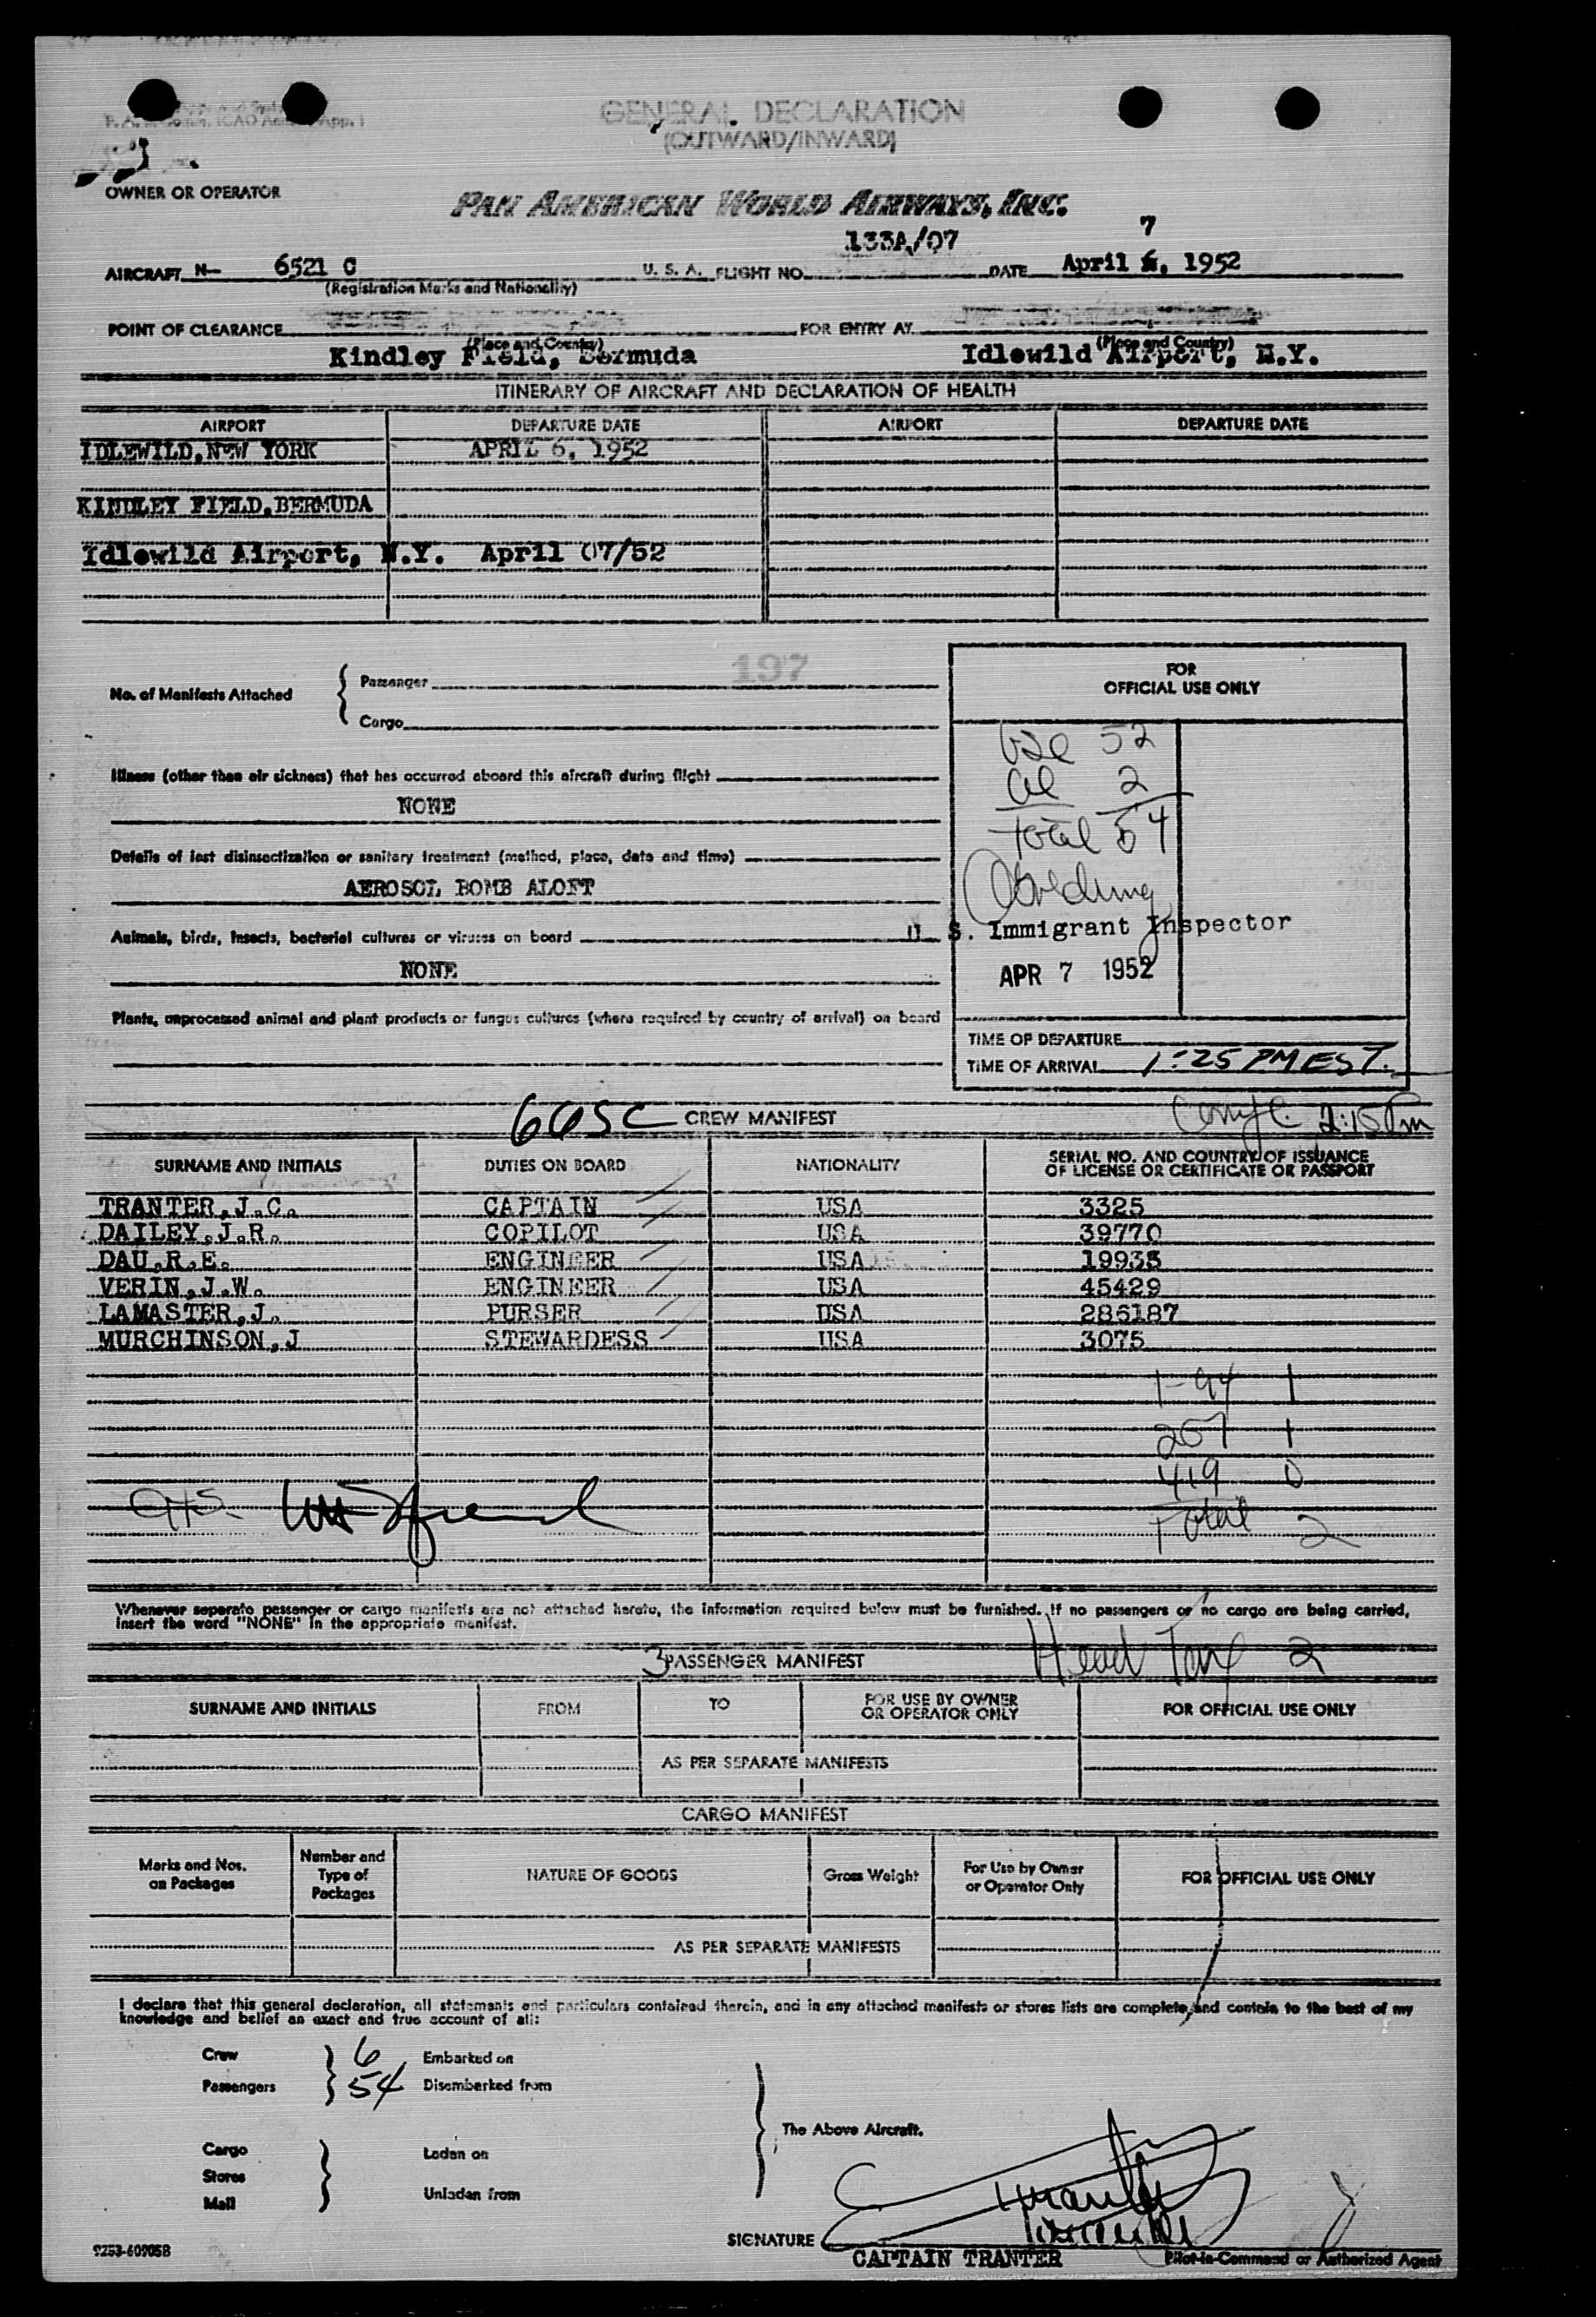 GENERAL DECLARATION
(OUTWARD/INWARD)
OWNER OR OPERATOR
PAN AMERICAN WORLD AIRWAYS, INC.
133A/07 7
AIRCRAFT N- 6521 C U. S. A. FLIGHT NO. DATE April 6, 1952
(Registration Marks and Nationality)
POINT OF CLEARANCE FOR ENTRY AT
(Place and Country) (Place and Country)
Kindley Field, Bermuda Idlewild Airport, N.Y.
ITINERARY OF AIRCRAFT AND DECLARATION OF HEALTH
AIRPORT DEPARTURE DATE AIRPORT DEPARTURE DATE
IDLEWILD, NEW YORK APRIL 6, 1952
KINDLEY FIELD, BERMUDA
Idlewild Airport, N.Y. April 07/52
197
No. of Manifests Attached { Passenger
Cargo
FOR
OFFICIAL USE ONLY
52
Illness (other than air sickness) that has occurred aboard this aircraft during flight
2
NONE
Total 54
Details of last disinsectization or sanitary treatment (method, place, date and time)
AEROSOL BOMB ALOFT
Animals, birds, insects, bacterial cultures or viruses on board
U. S. Immigrant Inspector
NONE
APR 7 1952
Plants, unprocessed animal and plant products or fungus cultures (where required by country of arrival) on board
TIME OF DEPARTURE
TIME OF ARRIVAL 1:25 PM EST.
CREW MANIFEST 2:15 Pm
SURNAME AND INITIALS DUTIES ON BOARD NATIONALITY SERIAL NO. AND COUNTRY OF ISSUANCE
OF LICENSE OR CERTIFICATE OR PASSPORT
TRANTER, J.C. CAPTAIN USA 3325
DAILEY, J.R. COPILOT USA 39770
DAU, R.E. ENGINEER USA 19935
VERIN, J.W. ENGINEER USA 45429
LAMASTER, J. PURSER USA 286187
MURCHINSON, J STEWARDESS USA 3075
1-94 1
257 1
419 0
Total 2
Whenever seperate passenger or cargo manifests are not attached hereto, the information required below must be furnished. If no passengers or no cargo are being carried,
insert the word "NONE" in the appropriate manifest.
3 PASSENGER MANIFEST Head Tax 2
SURNAME AND INITIALS FROM TO FOR USE BY OWNER
OR OPERATOR ONLY FOR OFFICIAL USE ONLY
AS PER SEPARATE MANIFESTS
CARGO MANIFEST
Marks and Nos.
on Packages Number and
Type of
Packages NATURE OF GOODS Gross Weight For Use by Owner
or Operator Only FOR OFFICIAL USE ONLY
AS PER SEPARATE MANIFESTS
I declare that this general declaration, all statements and particulars contained therein, and in any attached manifests or stores lists are complete, and contain to the best of my
knowledge and belief an exact and true account of all:
Crew 6 Embarked on
Passengers 54 Disembarked from
The Above Aircraft.
Cargo Laden on
Stores
Mail Unladen from
SIGNATURE
CAPTAIN TRANTER Pilot-in-Command or Authorized Agent
9253-60905B